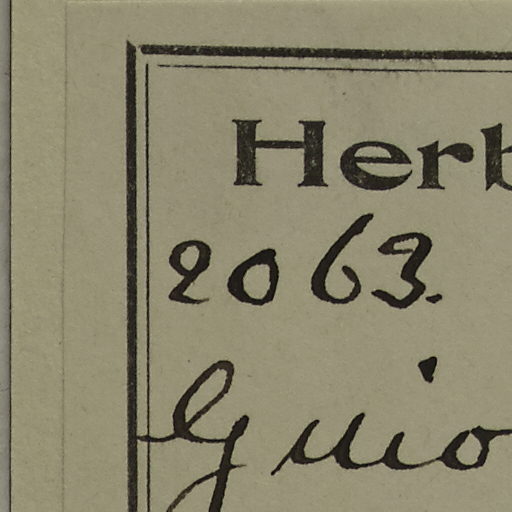 Herb
2063.
Guio